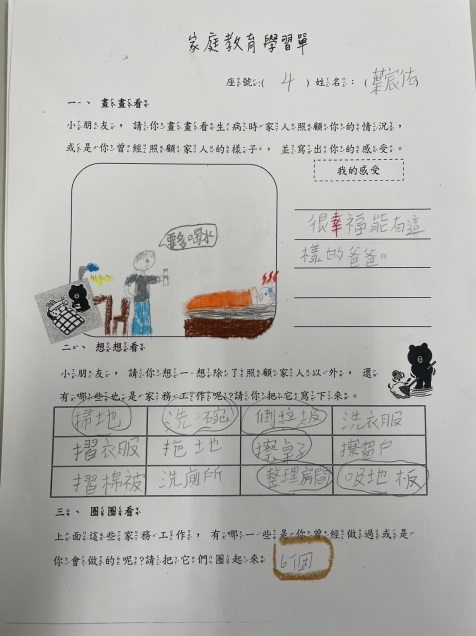 家庭教育學習單
座號:( 4 ) 姓名:( 葉宸佑
一、畫畫看
小朋友,請你畫畫看生病時家人照顧你的情況,
或是你曾經照顧家人的樣子,並寫出你的感受。
我的感受
要多喝水
很幸福能有這
樣的爸爸。
二、想想看
小朋友,請你想一想除了照顧家人以外,還
有哪些也是家務工作呢?請你把它寫下來。
掃地 洗碗 倒垃圾 洗衣服
摺衣服 拖土地 擦桌子 擦窗戶
摺棉被 洗廁所 整理房間 吸地板
三、圈圈看
上面這些家務工作,有哪一些是你曾經做過或是
你會做的呢?請把它們圈起來 6個